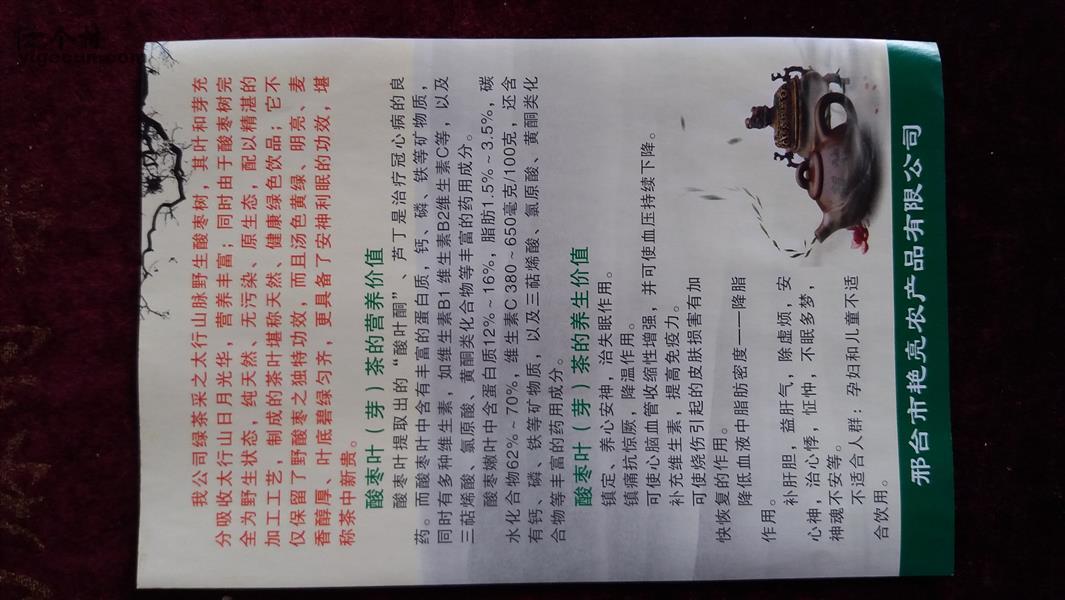 我公司绿茶采之太行山脉野生酸枣树，其叶和芽充
分吸收太行山日月光华，营养丰富；同时由于酸枣树完
全为野生状态，纯天然、无污染、原生态，配以精湛的
加工工艺，制成的茶叶堪称天然、健康绿色饮品；它不
仅保留了野酸枣之独特功效，而且汤色黄绿、明亮、麦
香醇厚、叶底碧绿匀齐，更具备了安神利眠的功效，堪
称茶中新贵。
酸枣叶（芽）茶的营养价值
酸枣叶提取出的“酸叶酮”、芦丁是治疗冠心病的良
药。而酸枣叶中含有丰富的蛋白质，钙、磷、铁等矿物质，
同时有多种维生素，如维生素B1 维生素B2维生素C等，以及
三萜烯酸、氯原酸、黄酮类化合物等丰富的药用成分。
酸枣嫩叶中含蛋白质12%～16%，脂肪1.5%～3.5%，碳
水化合物62%～70%，维生素C 380～650毫克/100克，还含
有钙、磷、铁等矿物质，以及三萜烯酸、氯原酸、黄酮类化
合物等丰富的药用成分。
酸枣叶（芽）茶的养生价值
镇定、养心安神，治失眠作用。
镇痛抗惊厥，降温作用。
可使心脑血管收缩性增强，并可使血压持续下降。
补充维生素，提高免疫力。
可使烧伤引起的皮肤损害有加
快恢复的作用。
降低血液中脂肪密度——降脂
作用。
补肝胆，益肝气，除虚烦，安
心神，治心悸，怔忡，不眠多梦，
神魂不安等。
不适合人群：孕妇和儿童不适
合饮用。
邢台市艳亮农产品有限公司
yigecun.com